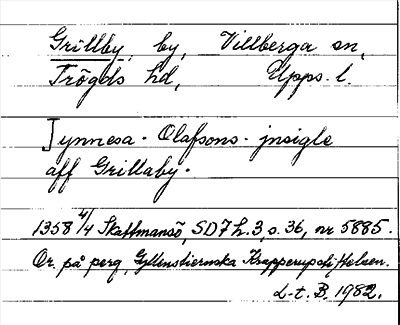 Grillby, by, Villberga sn,
Trögds hd, Upps. l.
Jynnesa · Olafsons · jnsigle
aff Grillaby ·
1358 4/4 Skattmansö, SD7 h. 3, s. 36, nr 5885.
Or. på perg, Gyllenstiernska Krapperupsti/telsen.
L-t. B. 1982.